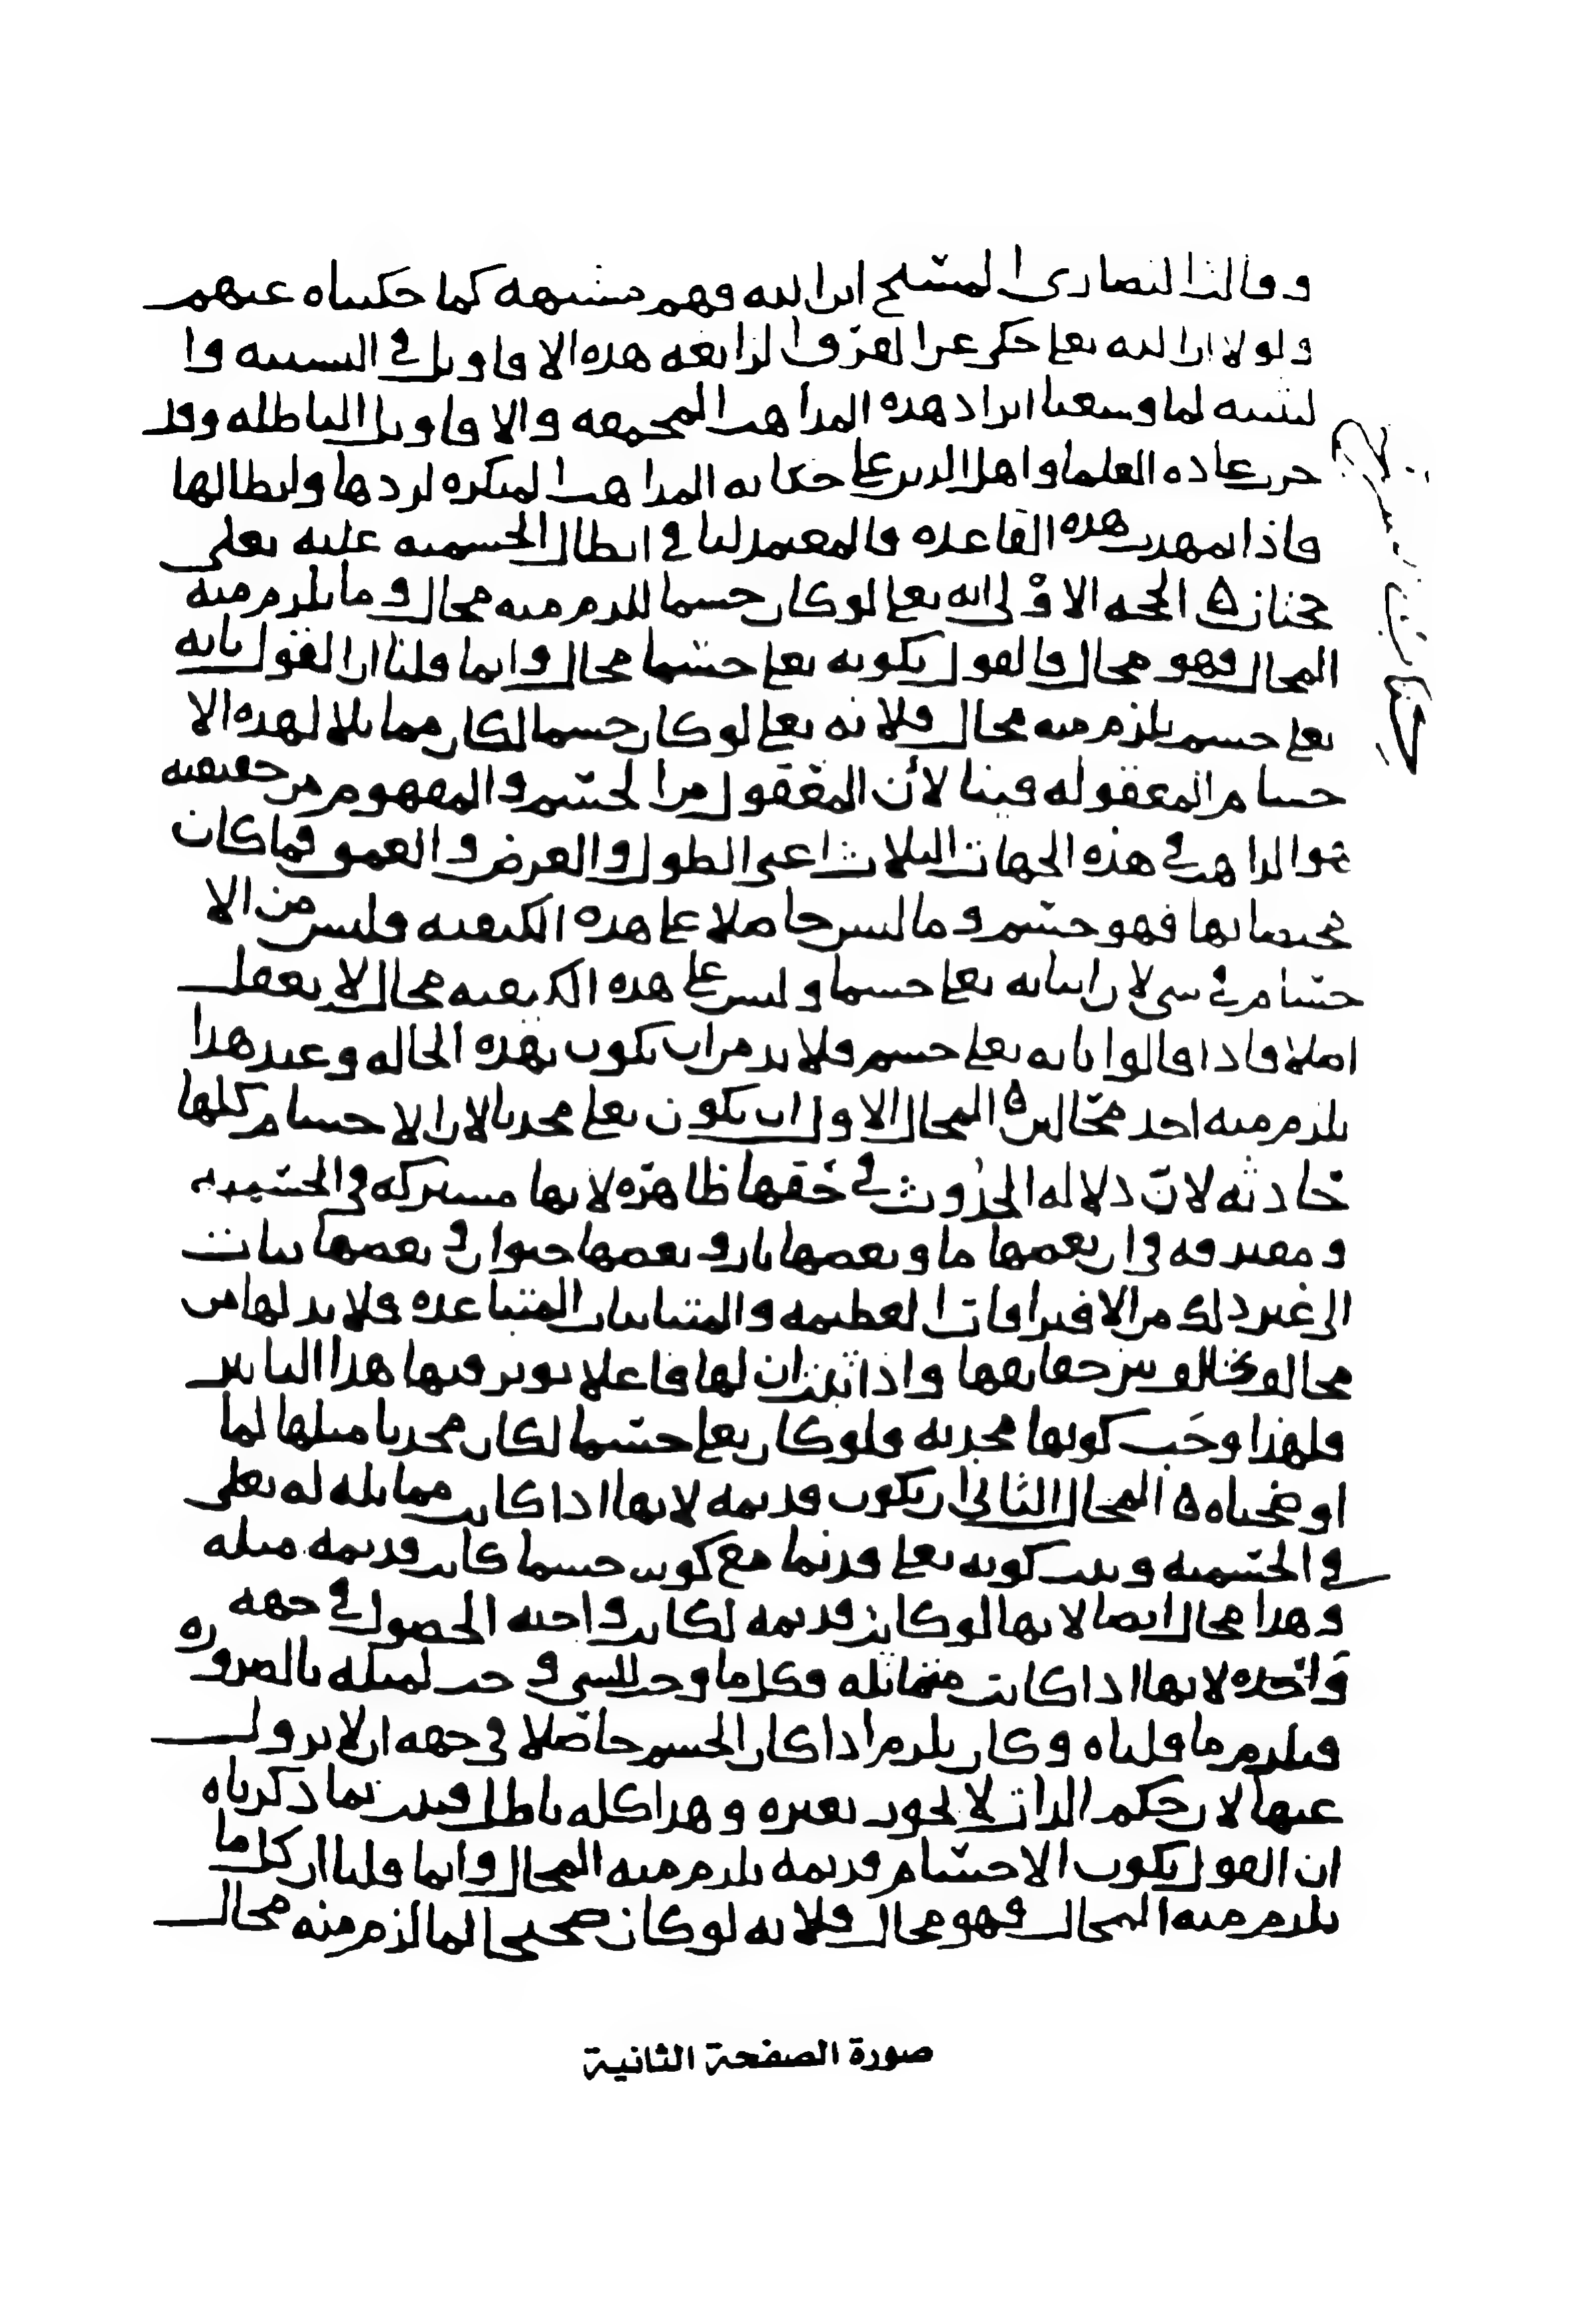 وقالت النصارى المسيح ابن الله فهم مشبهه كما حكيناه عنهم
ولولا ان الله تعلى حكى عن الفرق الزايغه هذه الاقاويل في التشبيه وا
لشبه لما وسعنا ايراد هذه المذاهب والاقاويل الباطله وقد
جرت عاده العلما واهل الدين على حكايه المذاهب المنكره لردها وابطالها
فاذا تمهدت هذه القاعده فالمعتمد لنا في ابطال الجسميه عليه تعلى
حجتان ۵ الحجه الاولى انه تعلى لو كان جسما للزم منه محال وما يلزم منه
المحال فهو محال فالقول بكونه تعلى جسما محال وانما قلنا ان القول بانه
تعلى جسم يلزم منه محال فلانه تعلى لو كان جسما لكان مماثلا لهذه الا
جسام المعقوله فينا لان المعقول من الجسم والمفهوم من حقيقته
هو الذاهب في هذه الجهات الثلاث اعنى الطول والعرض والعمق فما كان
مختصا بها فهو جسم وما ليس حاصلا على هذه الكيفيه فليس من الا
جسام في شي لان اثباته تعلى جسما وليس على هذه الكيفيه محال لا يعقل
اصلا فاذا قالوا بانه تعلى جسم فلا بد من ان يكون بهذه الحاله وعند هذا
يلزم منه احد محالين ۵ المحال الاول ان يكون تعلى محدثا لان الاجسام كلها
حادثه لان دلاله الحدوث في حقها ظاهره لانها مشتركه في الجسميه
ومفترقه في ان بعضها ما وبعضها نار وبعضها حيوان وبعضها نبات
الى غير ذلك من الافتراقات العظيمه والمتباينات المتباعده فلا بد لها من
مخالف يخالف بين حقايقها واذا ثبت ان لها فاعلا يوثر فيها هذا التاثير
فلهذا وجب كونها محدثه ولو كان تعلى جسما لكان محدثا مثلها لما
اوضحناه ۵ المحال الثاني ان يكون قديمه لانها اذا كانت مماثله له تعلى
في الجسميه وثبت كونه تعلى قديما مع كونه جسما كانت قديمه مثله
وهذا محال ايضا لانها لو كانت قديمه لكانت واجبه الحصول في جهه
واحده لانها اذا كانت متماثله فكل ما وجب للشي وجب لمثله بالضروره
فيلزم ما قلناه وكان يلزم اذا كان الجسم حاصلا في جهه ان لا يزول
عنها لان حكم الذات لا يجوز تغيره وهذا كله باطل فثبت بما ذكرناه
ان القول بكون الاجسام قديمه يلزم منه المحال وانما قلنا ان كل ما
يلزم منه المحال فهو محال فلانه لو كان صحيحا لما لزم منه محال
صورة الصفحة الثانية